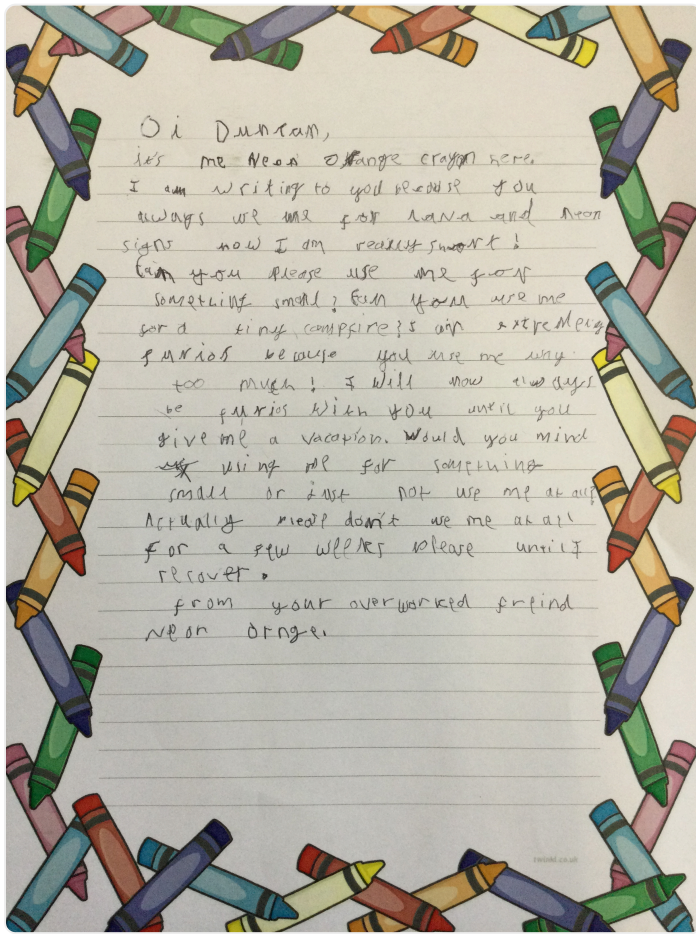 Oi Duncan,
it's me Neon Orange crayon here.
I am writing to you because you
always use me for lava and neon
signs now I am really short!
Can you please use me for
something small? Can you use me
for a tiny campfire? I am extremely
furios because you use me way
too much! I will now always
be furios with you until you
give me a vacation. Would you mind
using me for something
small or just not use me at all?
Actually please don't use me at all
For a few weeks please until I
recover.
from your overworked freind
Neon Ornge.
twinkl.co.uk